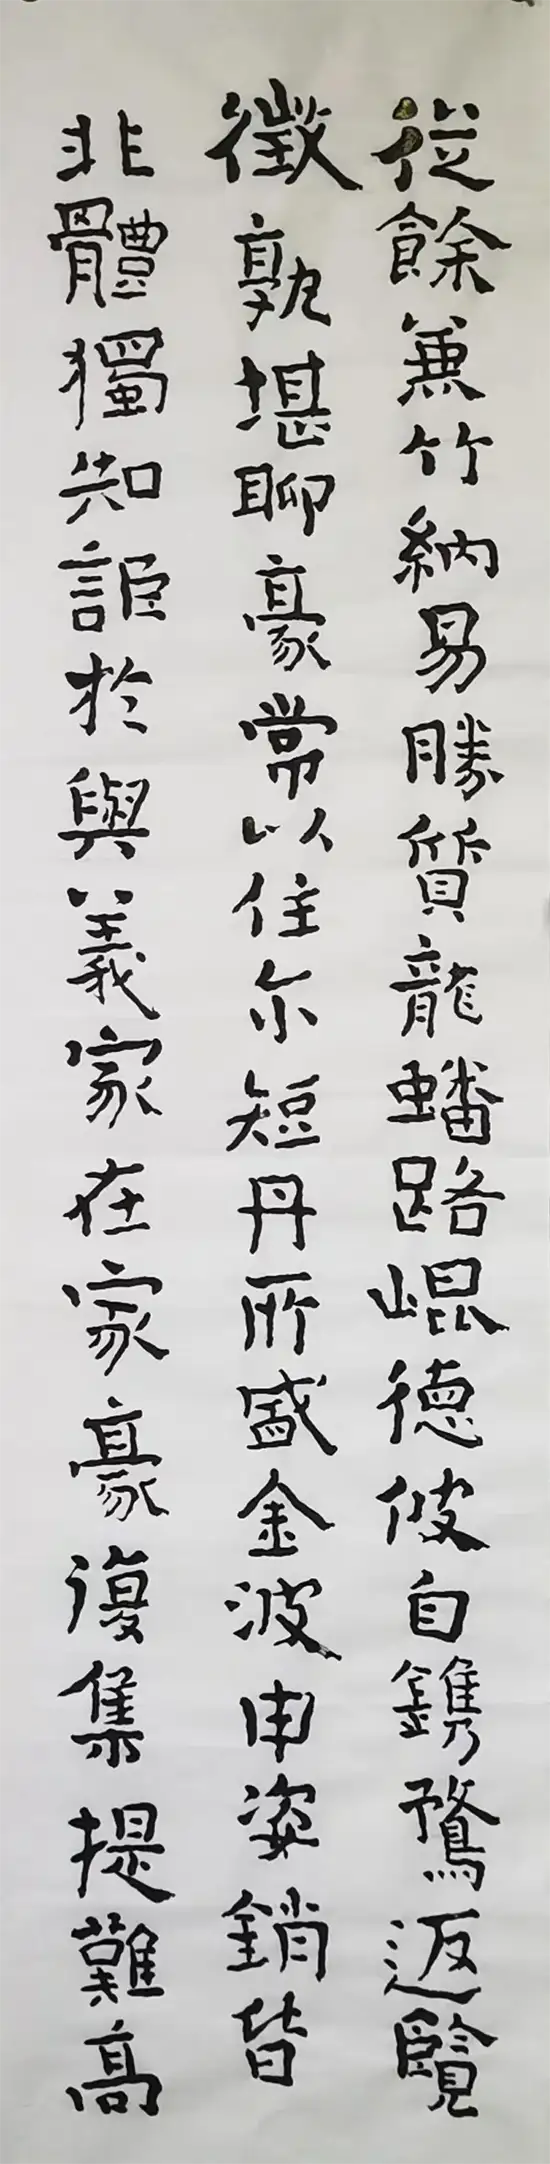 從餘兼竹納易勝質龍蟠路崐德彼自鐫鶩返覽
徵孰堪聊豪常以住尔短丹所盛金波申姿銷皆
非體獨知詎於與義家在家豪復集提難高